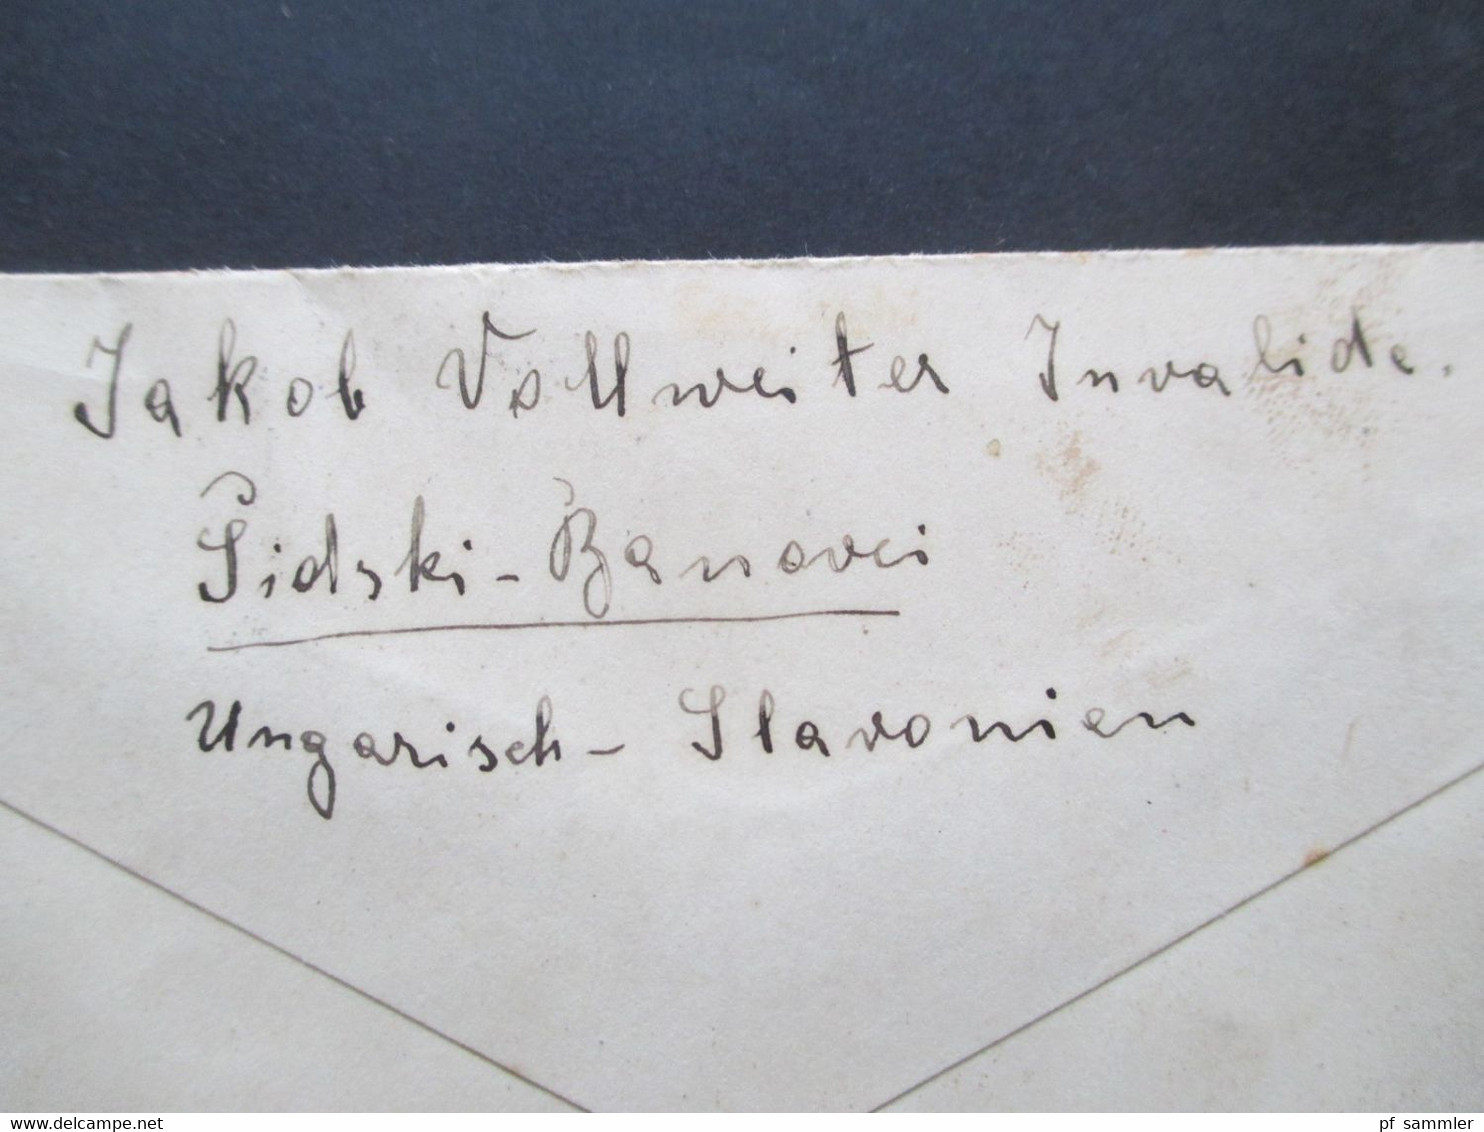 Jakob Vollweiter Invalide.
Šidski-Banovci
Ungarisch- Slavonien
www.delcampe.net
pf_sammler